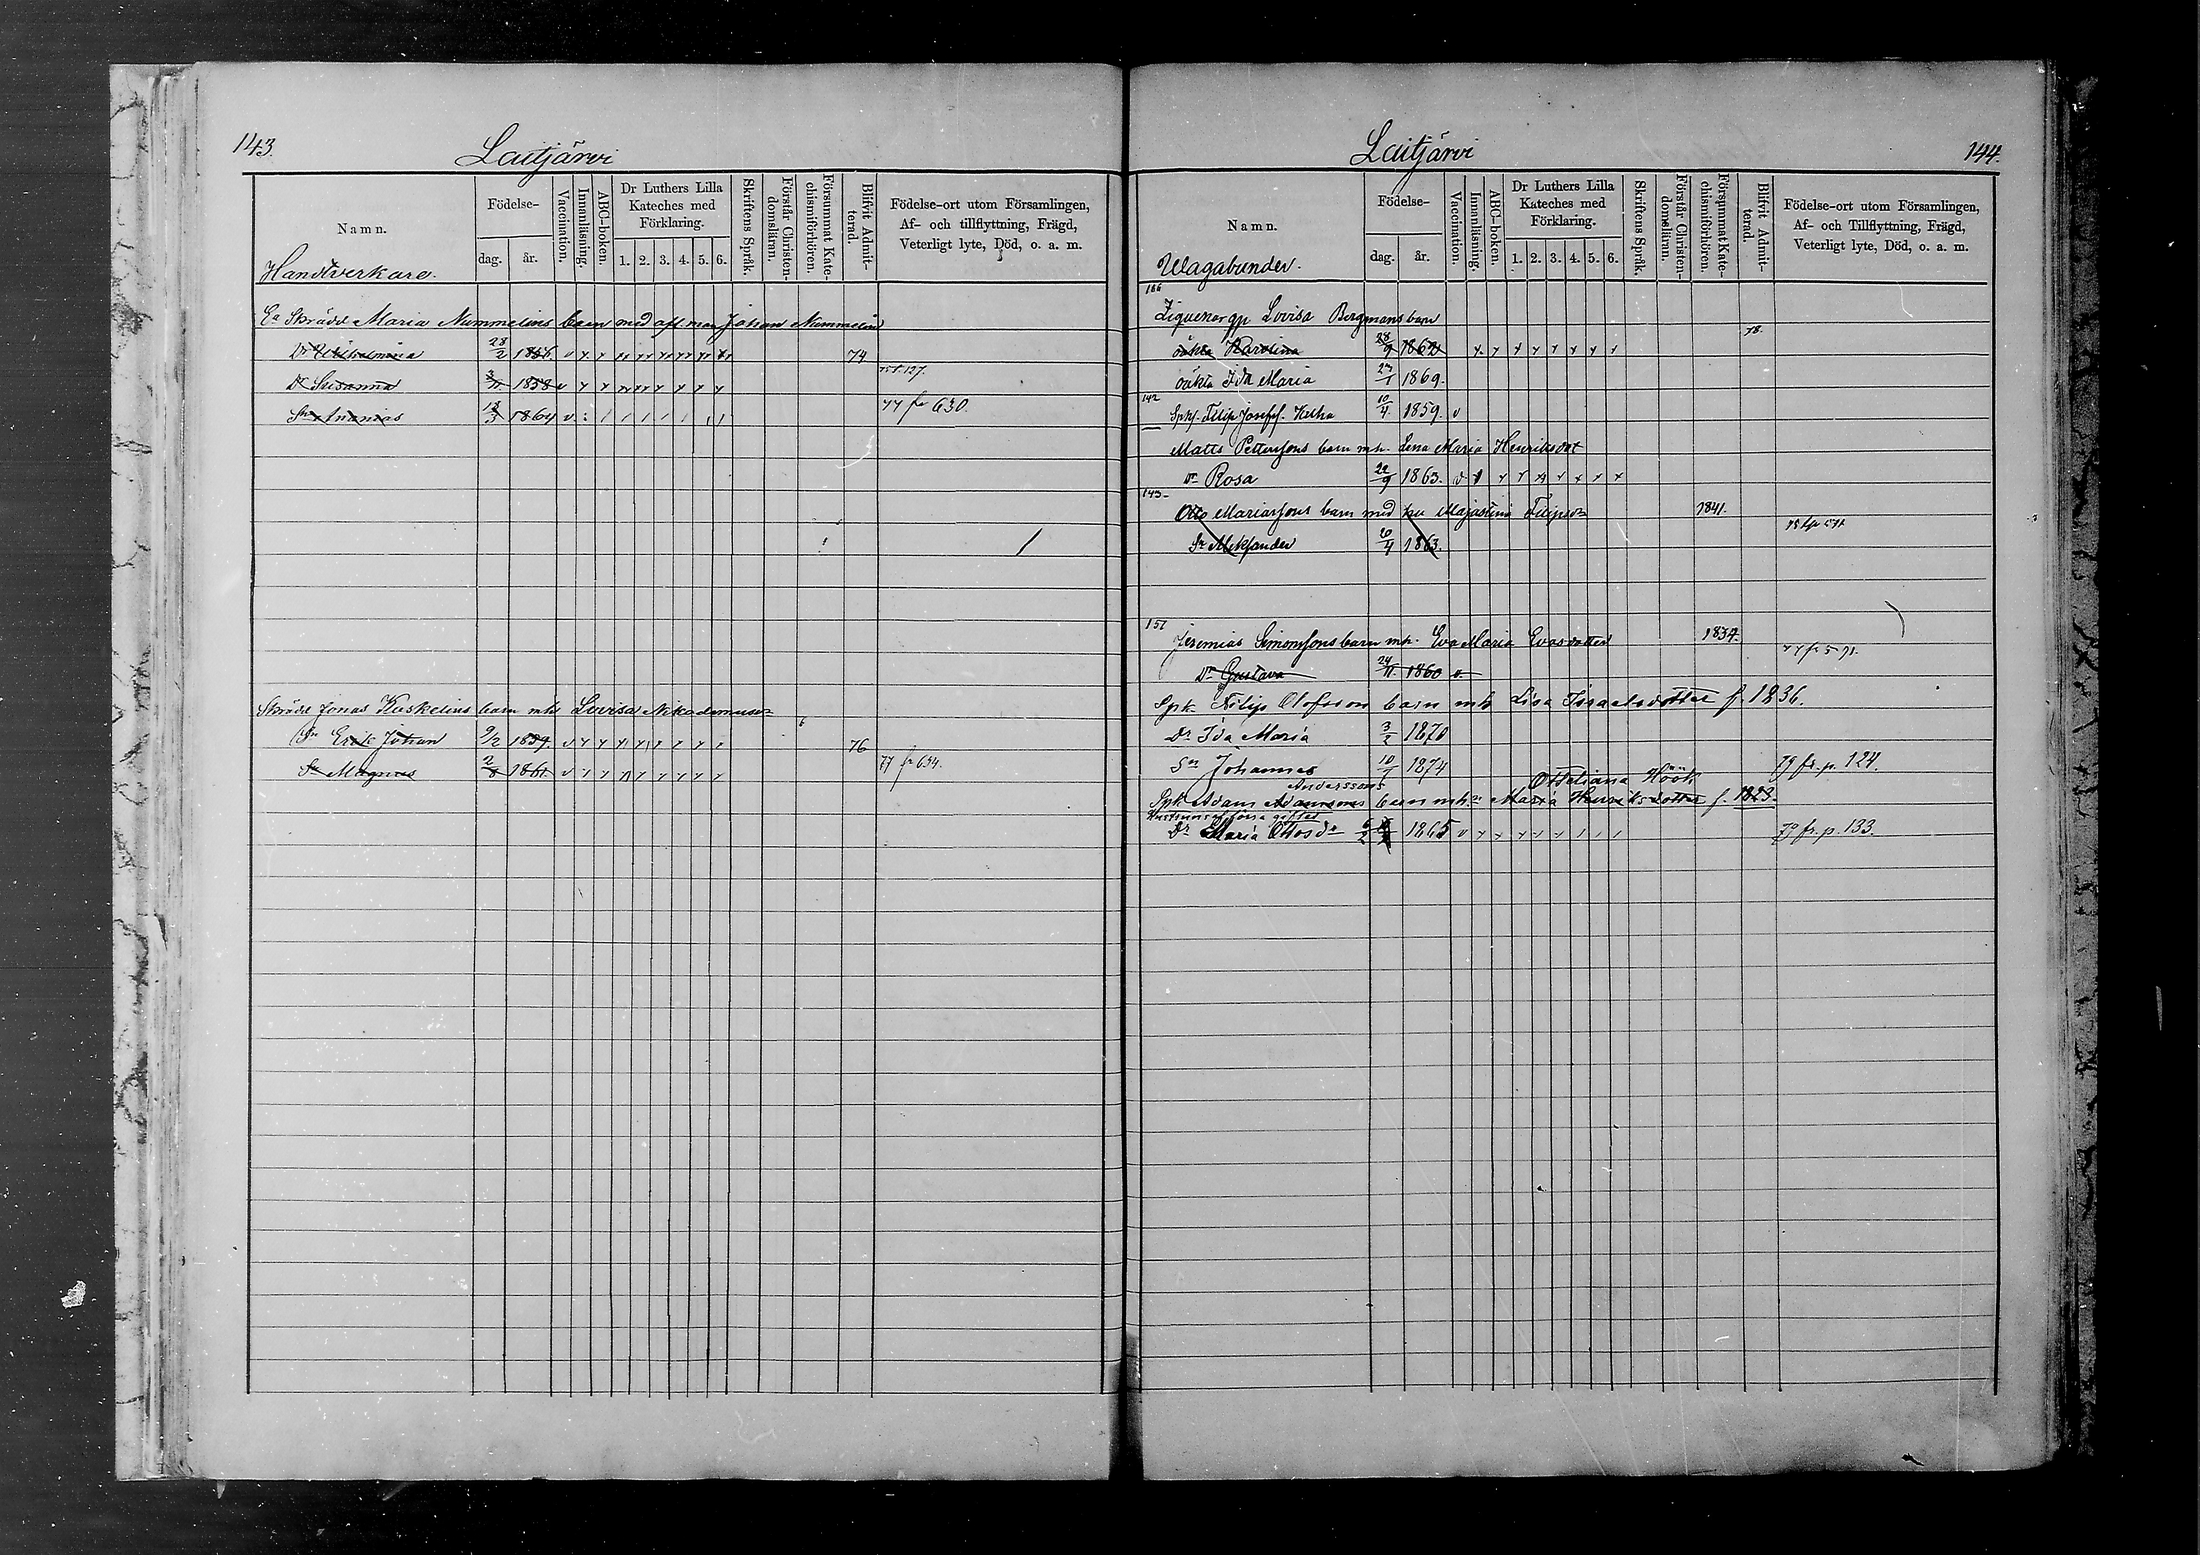 143.
Laitjärvi
Namn.
Födelse-
dag.
år.
Vaccination.
Innanläsning.
ABC-boken.
Dr Luthers Lilla
Kateches med
Förklaring.
1. 2. 3. 4. 5. 6.
Skriftens Språk.
Förstår Christen-
domsläran.
Försummat Kate-
chismiförhören.
Blifvit Admit-
terad.
Födelse-ort utom Församlingen,
Af- och tillflyttning, Frägd,
Veterligt lyte, Död, o. a. m.
Handtverkare.
Ea Skrädd Maria Nummelins barn med afl. man Johan Nummelin
Dr Wilhelmina 28/2 1856. v 74
Dr Susanna 3/11 1858 v 127.
Sn Ananias 18/3 1864 v 77 fr 630.
Skrädd Jonas Kuskelins barn mh Lovisa Nikodemusdr
Sn Erik Johan 9/2 1859. v 76
Sn Magnus 2/8 1861. v 77 fr 634.
Laitjärvi
144.
Namn.
Födelse-
dag.
år.
Vaccination.
Innanläsning.
ABC-boken.
Dr Luthers Lilla
Kateches med
Förklaring.
1. 2. 3. 4. 5. 6.
Skriftens Språk.
Förstår Christen-
domsläran.
Försummat Kate-
chismiförhören.
Blifvit Admit-
terad.
Födelse-ort utom Församlingen,
Af- och Tillflyttning, Frägd,
Veterligt lyte, Död, o. a. m.
Wagabunder.
166
Ziguenargp Lovisa Bergmans barn
oäkta Karolina 28/9 1862 78.
oäkta Ida Maria 27/1 1869.
142
Filip Josefs. 10/4 1859. v
Matts Pettersons barn mh. Lena Maria Henriksdot
Dr Rosa 22/9 1863. v
143
Otto Mariassons barn med hu Majastina Filipsdr 1841.
Sn Aleksander 6/4 1863.
151
Jeremias Simonssons barn mh. Eva Maria Evasdotter 1834.
Dr Gustava 24/11 1860 v. 77 fr 571.
Spk. Filip Olofsson barn mh Lisa Israelsdotter f. 1836.
Dr Ida Maria 3/2 1870
Sn Johannes 10/1 1874 79 fr. p. 124.
Anderssons Otteliana Höök
Spk Adam Adamsons barn mh: Maria Henriksdotter f. 1823.
Hustruns i förra giftet
Dr Maria Ottosdr 6/2 1865 v 79 fr. p. 133.